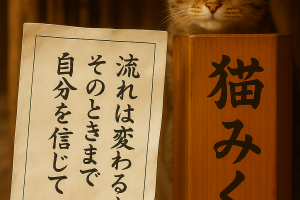 流れは変わる
そのときまで
自分を信じて
猫みく